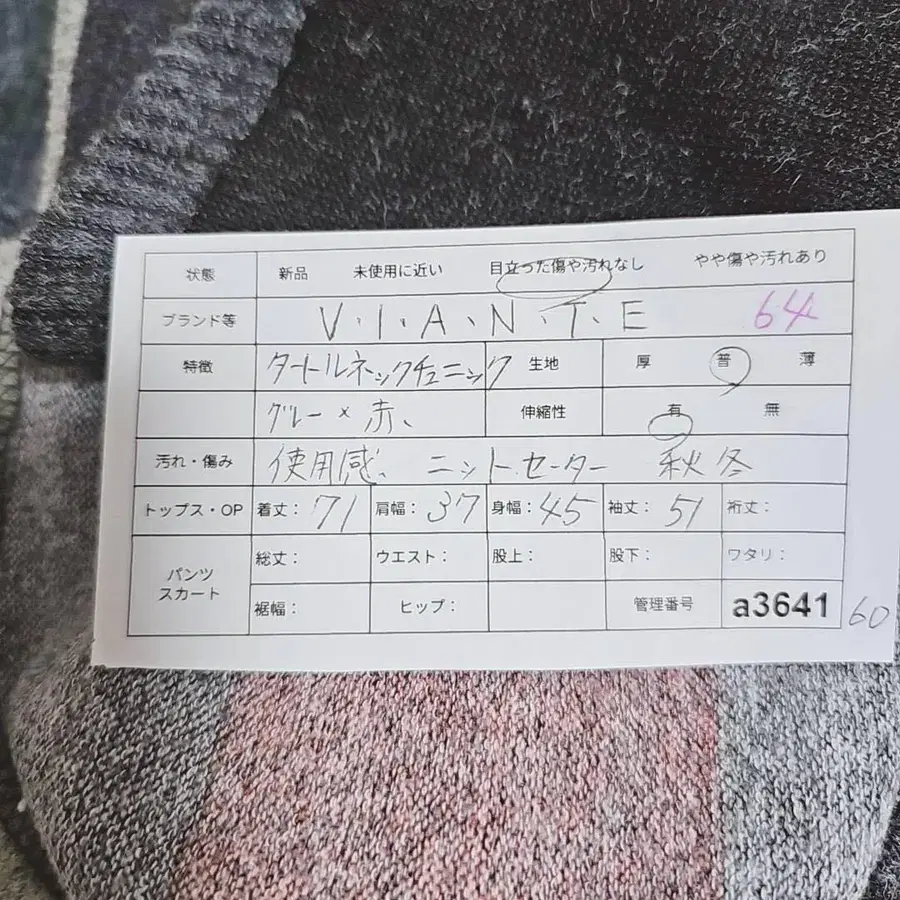 状態 新品 未使用に近い 目立った傷や汚れなし やや傷や汚れあり
ブランド等 V、I、A、N、T、E 64
特徴 タートルネックチュニック 生地 厚 普 薄
グレー×赤、 伸縮性 有 無
汚れ・傷み 使用感、ニットセーター 秋冬
トップス・OP 着丈:71 肩幅:37 身幅:45 袖丈:51 裄丈:
パンツ スカート 総丈: ウエスト: 股上: 股下: ワタリ:
裾幅: ヒップ: 管理番号 a3641 60